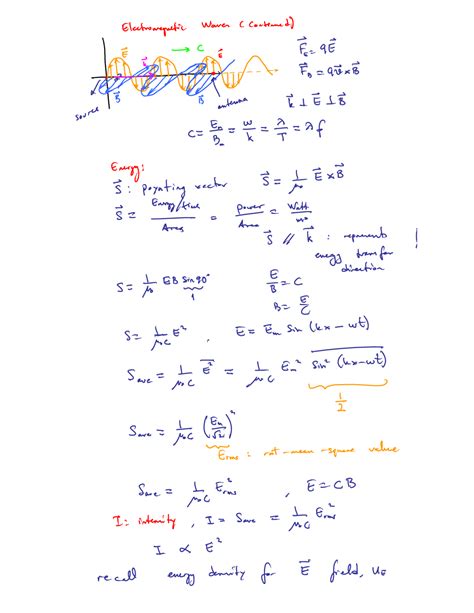 Electromagnetic Waves (Continued)
→ C
E⃗
k⃗
E⃗
B⃗
B⃗
source
antenna
F⃗_E = qE⃗
F⃗_B = qv⃗×B⃗
k⃗ ⊥ E⃗ ⊥ B⃗
C = E_m/B_m = w/k = λ/T = λf
Energy:
S⃗: poynting vector S⃗ = 1/μ₀ E⃗×B⃗
S⃗ = Energy/time / Area = power/Area = Watt/m²
S⃗ // k⃗ : represents energy transfer direction !
S = 1/μ₀ EB Sin90° E/B = C
1
B = E/C
S = 1/μ₀C E² , E = E_m Sin (kx-wt)
S_ave = 1/μ₀C E² = 1/μ₀C E_m² Sin² (kx-wt)
1/2
S_ave = 1/μ₀C (E_m/√2)²
E_rms : root-mean-square value
S_ave = 1/μ₀C E²_rms , E = CB
I: intensity , I = S_ave = 1/μ₀C E²_rms
I ∝ E²
recall energy density for E⃗ field, u_E